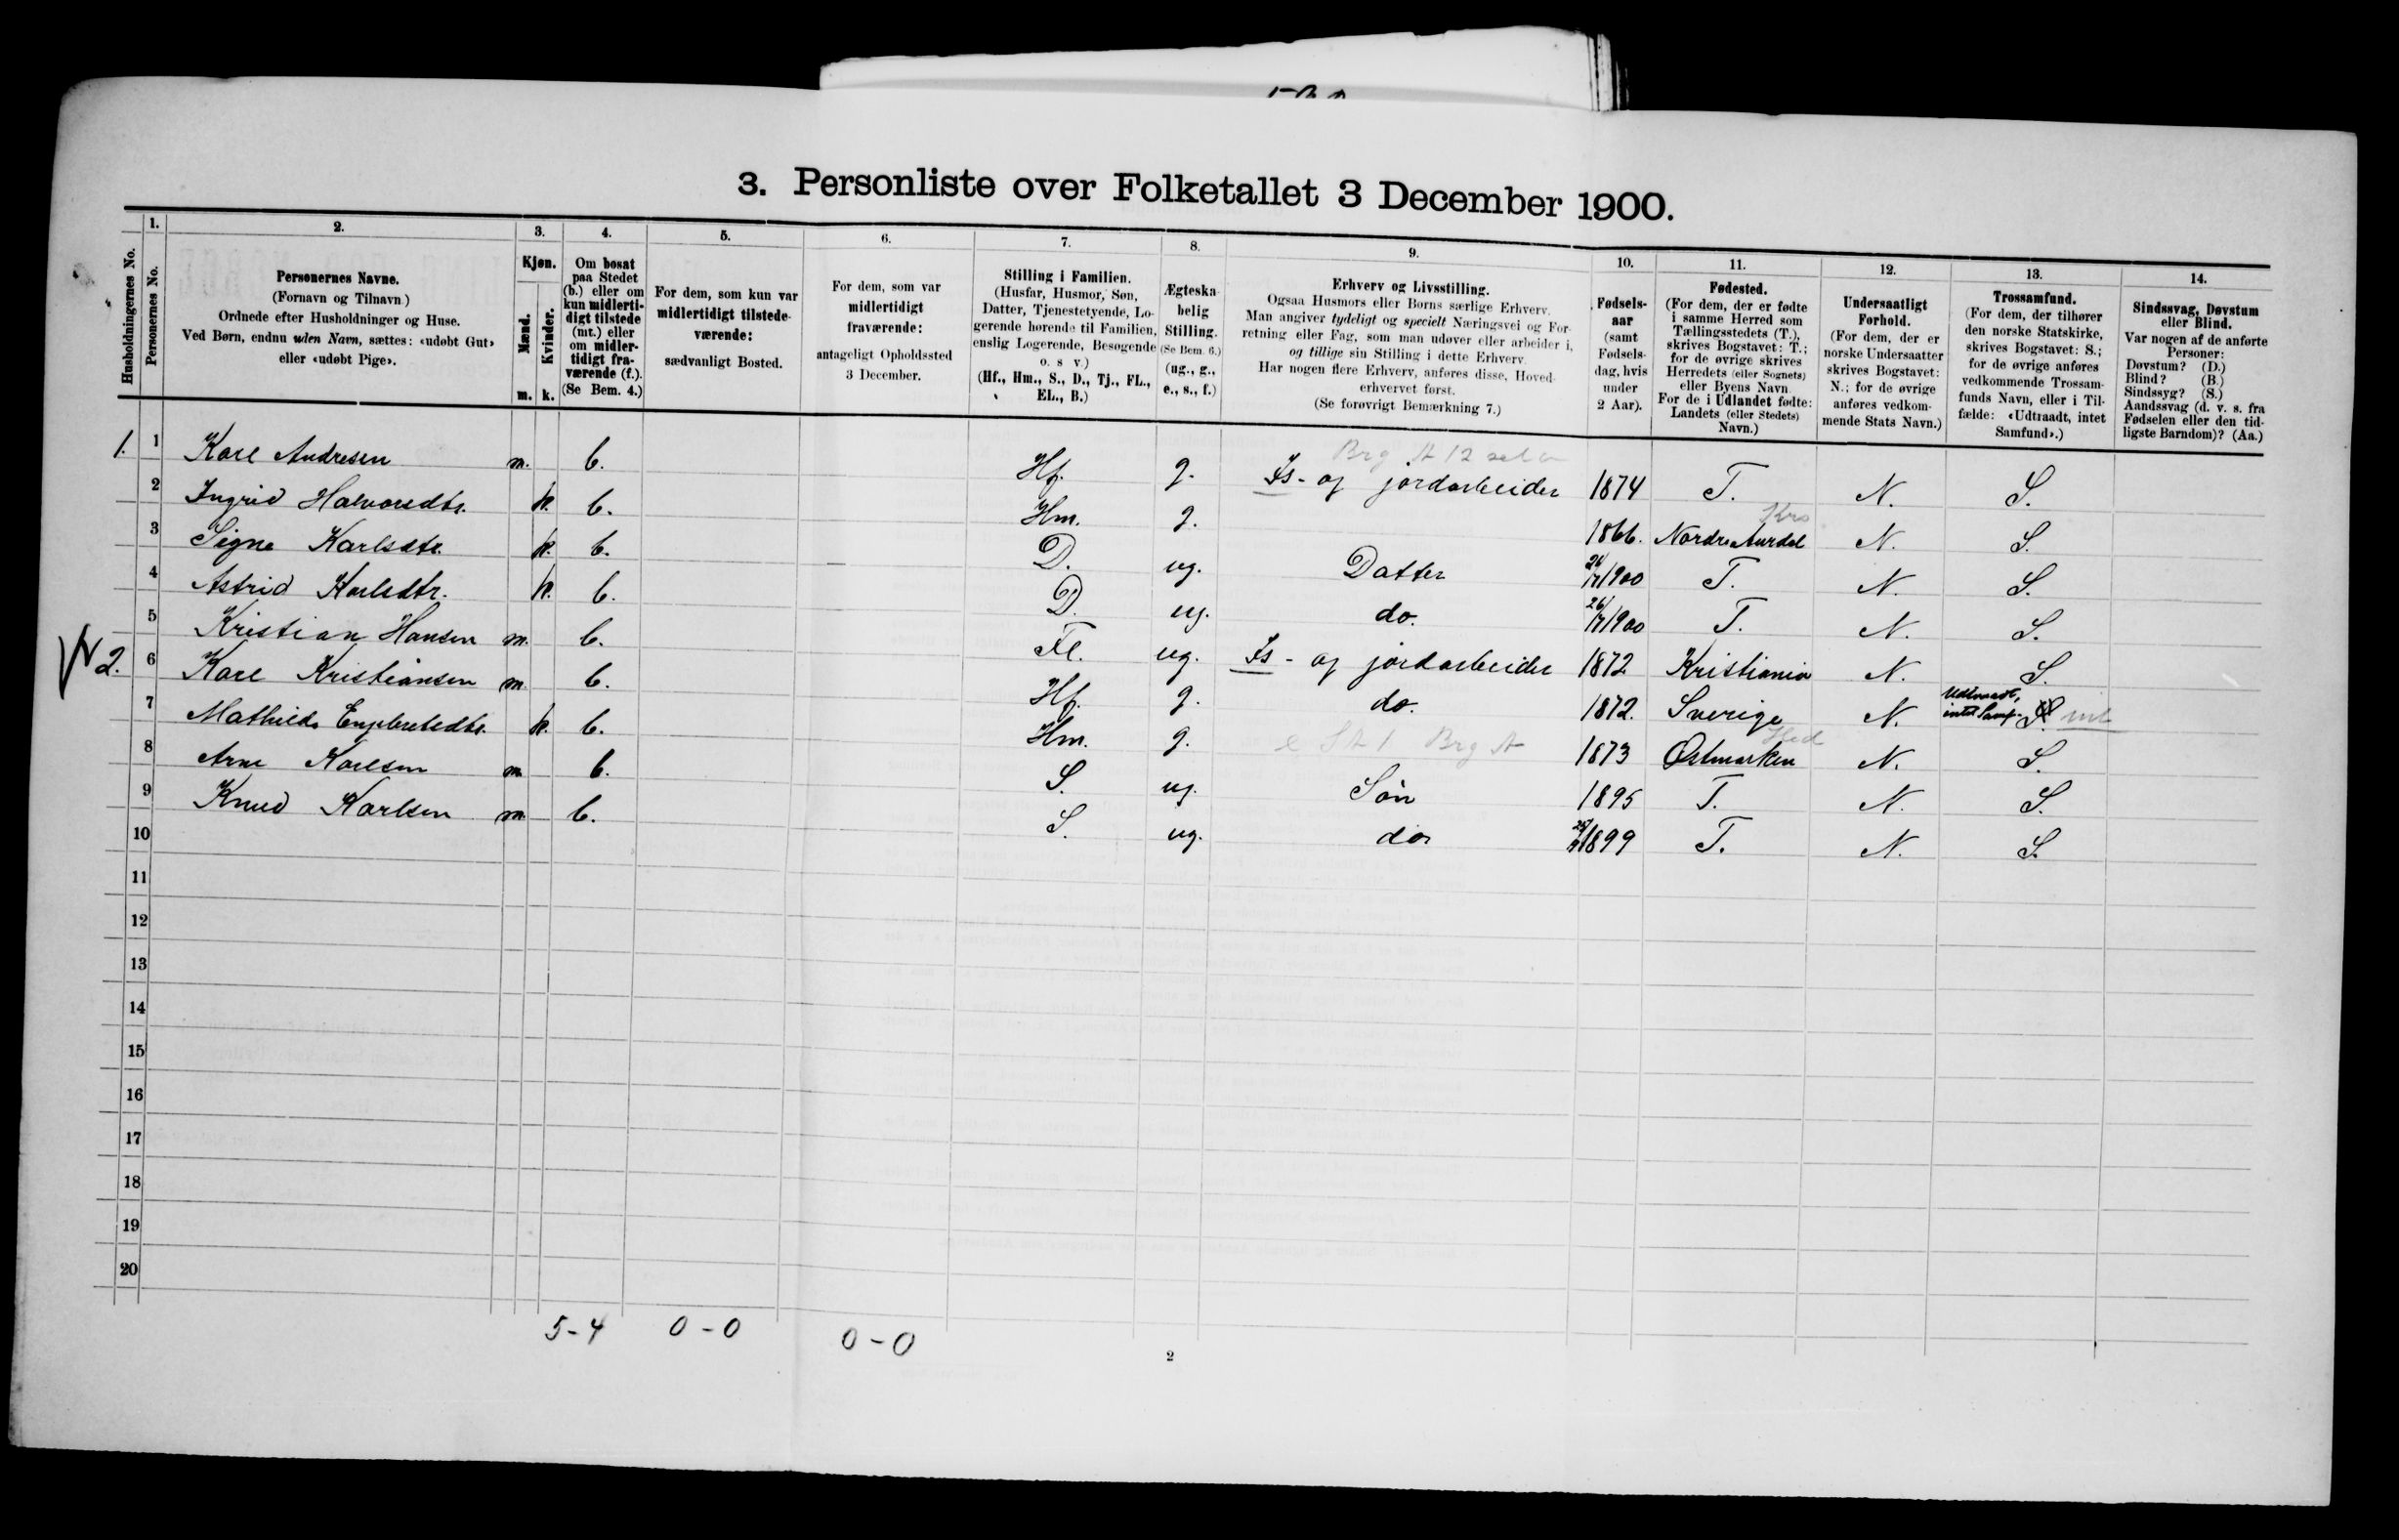 3. Personliste over Folketallet 3 December 1900.
1. 2. 3. 4. 5. 6. 7. 8. 9. 10. 11. 12. 13. 14.
Husholdningernes No.
Personernes No.
Personernes Navne.
(Fornavn og Tilnavn.)
Ordnede efter Husholdninger og Huse.
Ved Børn, endnu uden Navn, sættes: «udøbt Gut»
eller «udøbt Pige».
Kjøn.
Mænd.
Kvinder.
m. k.
Om bosat
paa Stedet
(b.) eller om
kun midlerti-
digt tilstede
(mt.) eller
om midler-
tidigt fra-
værende (f.).
(Se Bem. 4.)
For dem, som kun var
midlertidigt tilstede-
værende:
sædvanligt Bosted.
For dem, som var
midlertidigt
fraværende:
antageligt Opholdssted
3 December.
Stilling i Familien.
(Husfar, Husmor, Søn,
Datter, Tjenestetyende, Lo-
gerende hørende til Familien,
enslig Logerende, Besøgende
o. s v.)
(Hf., Hm., S., D., Tj., FL.,
EL., B.)
Ægteska-
belig
Stilling.
(Se Bem. 6.)
(ug., g.,
e., s., f.)
Erhverv og Livsstilling.
Ogsaa Husmors eller Børns særlige Erhverv.
Man angiver tydeligt og specielt Næringsvei og For-
retning eller Fag, som man udøver eller arbeider i,
og tillige sin Stilling i dette Erhverv.
Har nogen flere Erhverv, anføres disse, Hoved-
erhvervet først.
(Se forøvrigt Bemærkning 7.)
Fødsels-
aar
(samt
Fødsels-
dag, hvis
under
2 Aar).
Fødested.
(For dem, der er fødte
i samme Herred som
Tællingsstedets (T.),
skrives Bogstavet: T.;
for de øvrige skrives
Herredets (eller Sognets)
eller Byens Navn.
For de i Udlandet fødte:
Landets (eller Stedets)
Navn.)
Undersaatligt
Forhold.
(For dem, der er
norske Undersaatter
skrives Bogstavet:
N.; for de øvrige
anføres vedkom-
mende Stats Navn.)
Trossamfund.
(For dem, der tilhører
den norske Statskirke,
skrives Bogstavet: S.;
for de øvrige anføres
vedkommende Trossam-
funds Navn, eller i Til-
fælde: «Udtraadt, intet
Samfund».)
Sindssvag, Døvstum
eller Blind.
Var nogen af de anførte
Personer:
Døvstum? (D.)
Blind? (B.)
Sindssyg? (S.)
Aandssvag (d. v. s. fra
Fødselen eller den tid-
ligste Barndom)? (Aa.)
Brg A 12
1. 1 Karl Andresen m. b. Hf. g. Is- og jordarbeider 1874 T. N. S.
Krs
2 Ingrid Halvorsdtr. k. b. Hm. g. 1866. Nordre Aurdal N. S.
3 Signe Karlsdtr. k. b. D. ug. Datter 1900 T. N. S.
4 Astrid Karlsdtr. k. b. D. ug. do. 1900 T. N. S.
5 Kristian Hansen m. b. Fl. ug. Is- og jordarbeider 1872 Kristiania N. S.
2. 6 Karl Kristiansen m. b. Hf. g. do. 1872. Sverige N. Udtraadt, intet Samf.
Hed
7 Mathilde Engebretsdtr. k. b. Hm. g. Brg A 1873 Østmarken N. S.
8 Arne Karlsen m. b. S. ug. Søn 1895 T. N. S.
9 Knud Karlsen m. b. S. ug. do 1899 T. N. S.
10
11
12
13
14
15
16
17
18
19
20
5-4 0-0 0-0
2